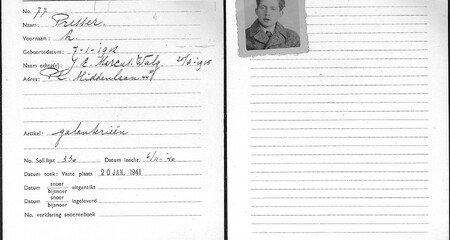 No. 77
Naam: Presser.
Voornaam:
Geboortedatum: 7-1-1912
Naam echtg(e):
Adres: Pl. Middenlaan
Artikel: galanterieën
No. Soll.lijst 330 Datum inschr.
Datum toek: Vaste plaats 20 JAN. 1941
Datum snoer
bijsnoer uitgereikt
Datum snoer
bijsnoer ingeleverd
No. verklaring snoerenboek